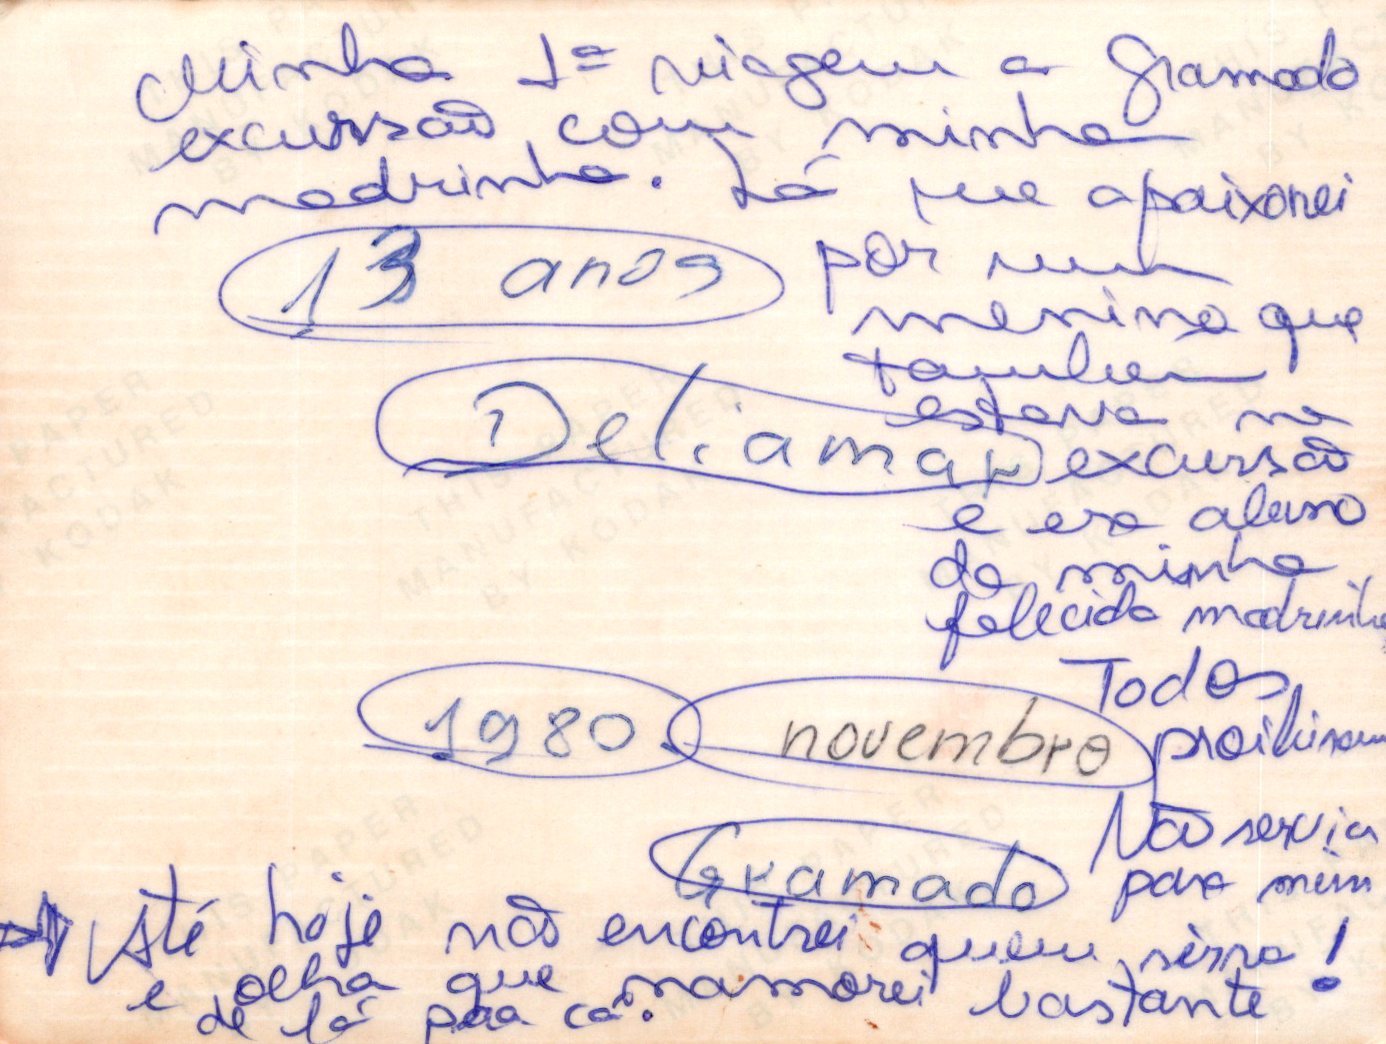 Minha 1ª viagem a Gramado
excursão com minha
madrinha. Lá me apaixonei
13 anos
por um
menino que
tambem
estava na
Deliamar
excursão
e era aluno
da minha
falecida madrinha
Todos
proibiram
1980 novembro
Não servia
para mim
Gramado
Até hoje não encontrei quem sirva!
e olha que namorei bastante
de lá para cá.
THIS PAPER
MANUFACTURED
BY KODAK